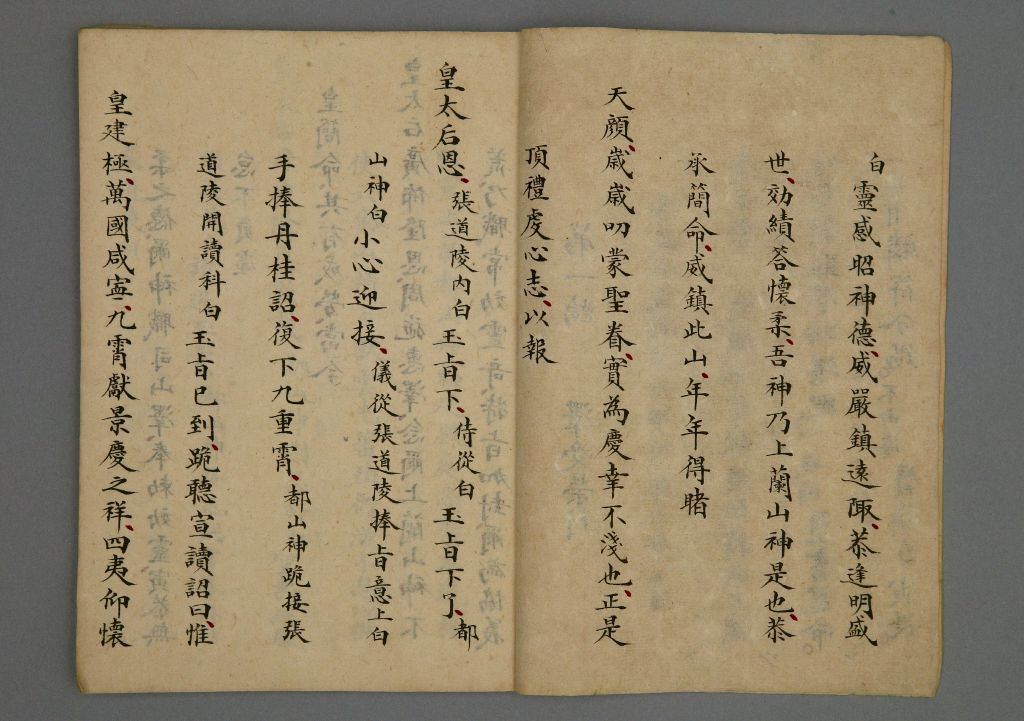 白靈感昭神德、威嚴鎮遠陬、恭逢明盛
世、効績答懷柔、吾神乃上蘭山神是也、恭
承簡命、威鎮此山、年年得睹
天顔、歲歲叨蒙聖眷、實為慶幸不淺也、正是
頂禮虔心志、以報
皇太后恩、張道陵內白玉旨下、侍從白玉旨下了、都
山神白小心迎接、儀從張道陵捧旨意上白
手捧丹桂詔、復下九重霄、都山神跪接張
道陵開讀科白玉旨已到、跪聽宣讀詔曰、惟
皇建極、萬國咸寧、九霄獻景慶之祥、四夷仰懷